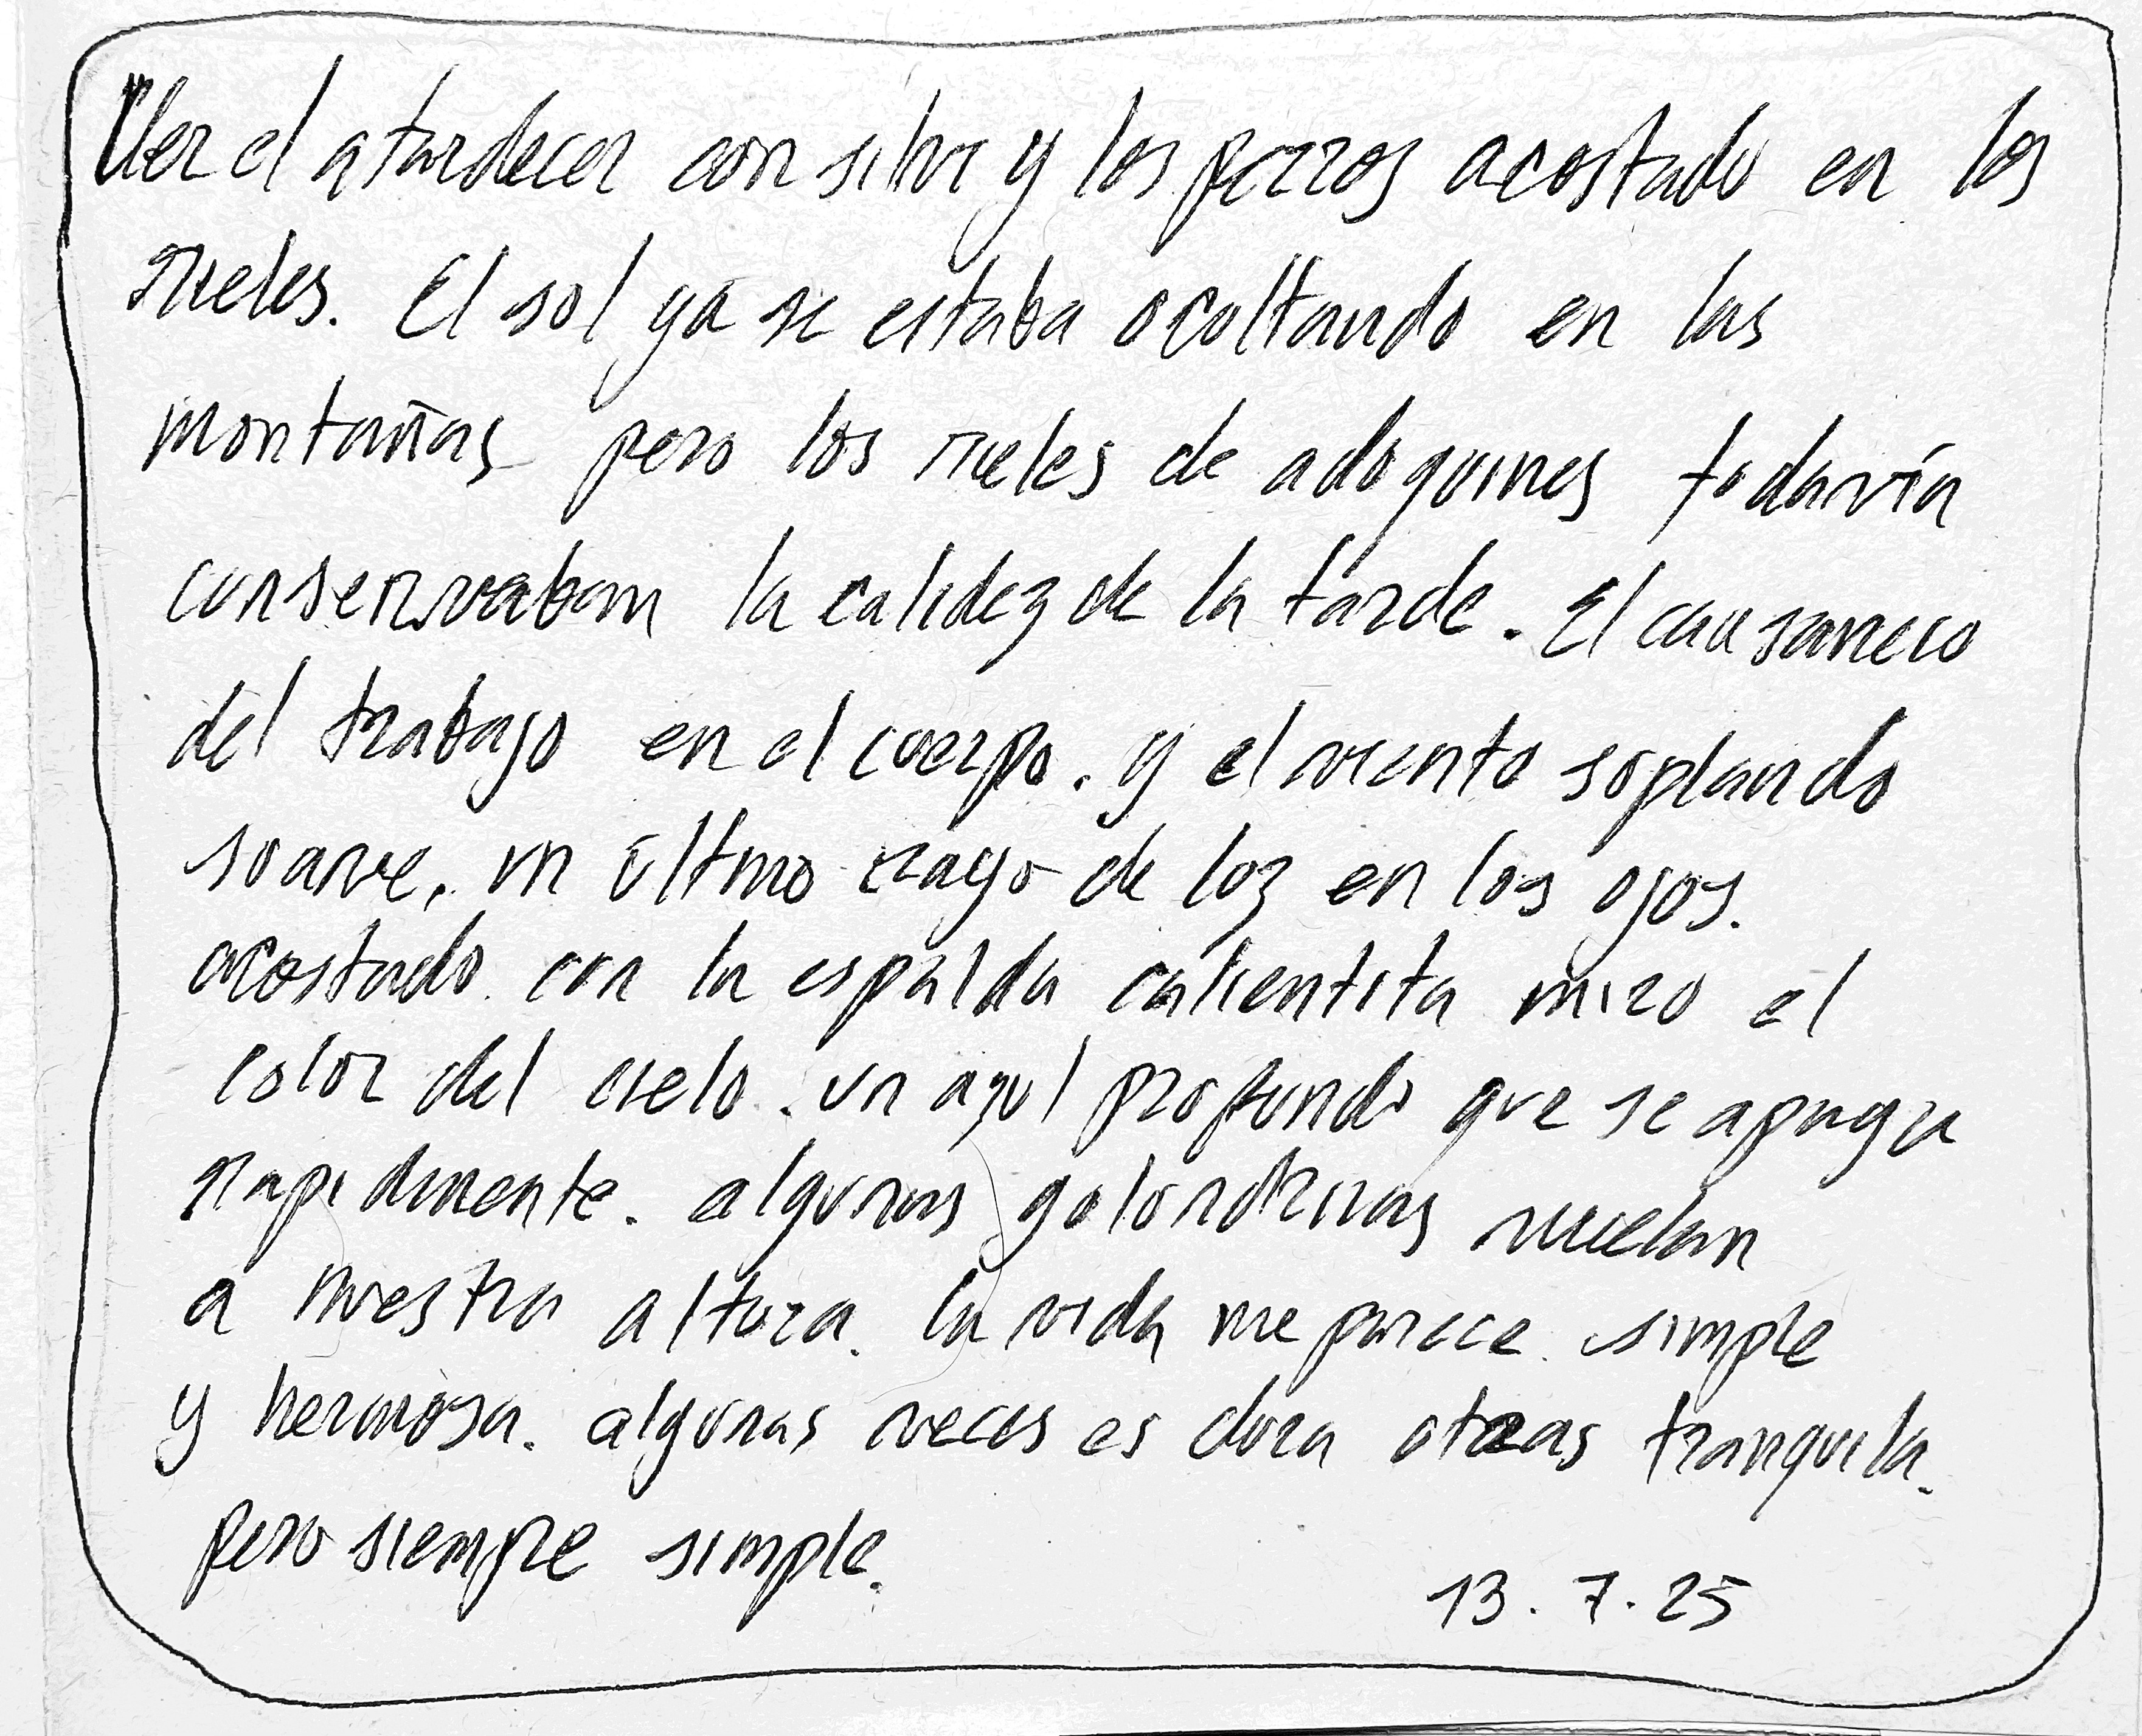 Ver el atardecer con silvi y los perros acostado en los
rieles. El sol ya se estaba ocultando en las
montañas pero los rieles de adoquines todavía
conservaban la calidez de la tarde. El causaneco
del trabajo en el cuerpo. y el viento soplando
suave, un último rayo de luz en los ojos.
acostado con la espalda calientita miro el
color del cielo. un azul profundo que se apaga
rapidmente. algunas golondrinas vuelan
a nuestra altura. la vida me parece simple
y hermosa. algunas veces es dura otras tranquila.
pero siempre simple.
13.7.25